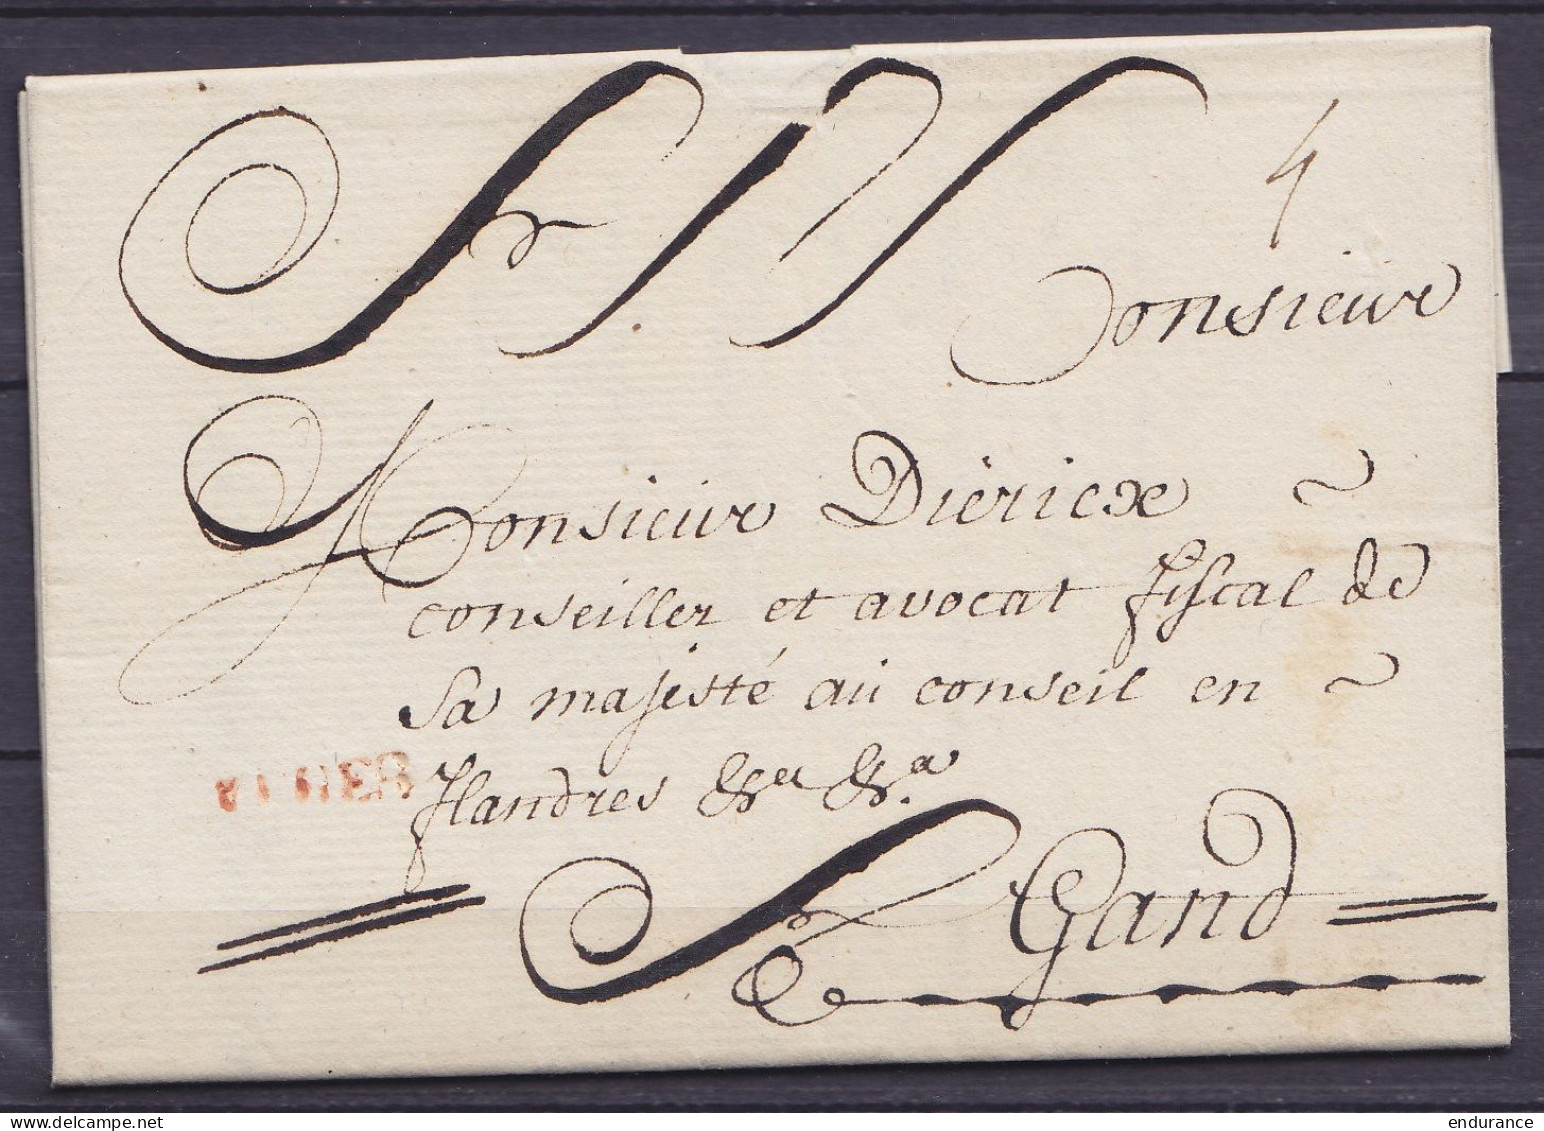 4
Monsieur
Monsieur Diericx
conseiller et avocat fiscal de
sa majesté au conseil en
flandres &a &a
Gand
delcampe.net
endurance